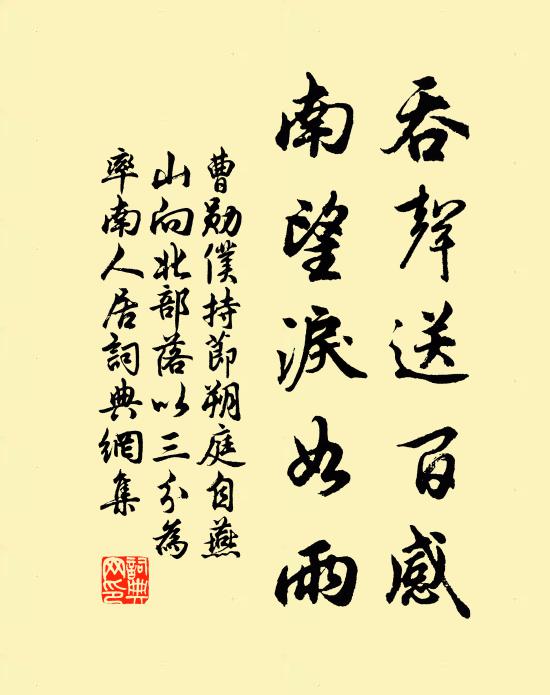 吞聲送百感
南望淚如雨
曹勛僕持節朔庭自燕
山向北部落以三分為
率南人居詞典網集
詞典网印